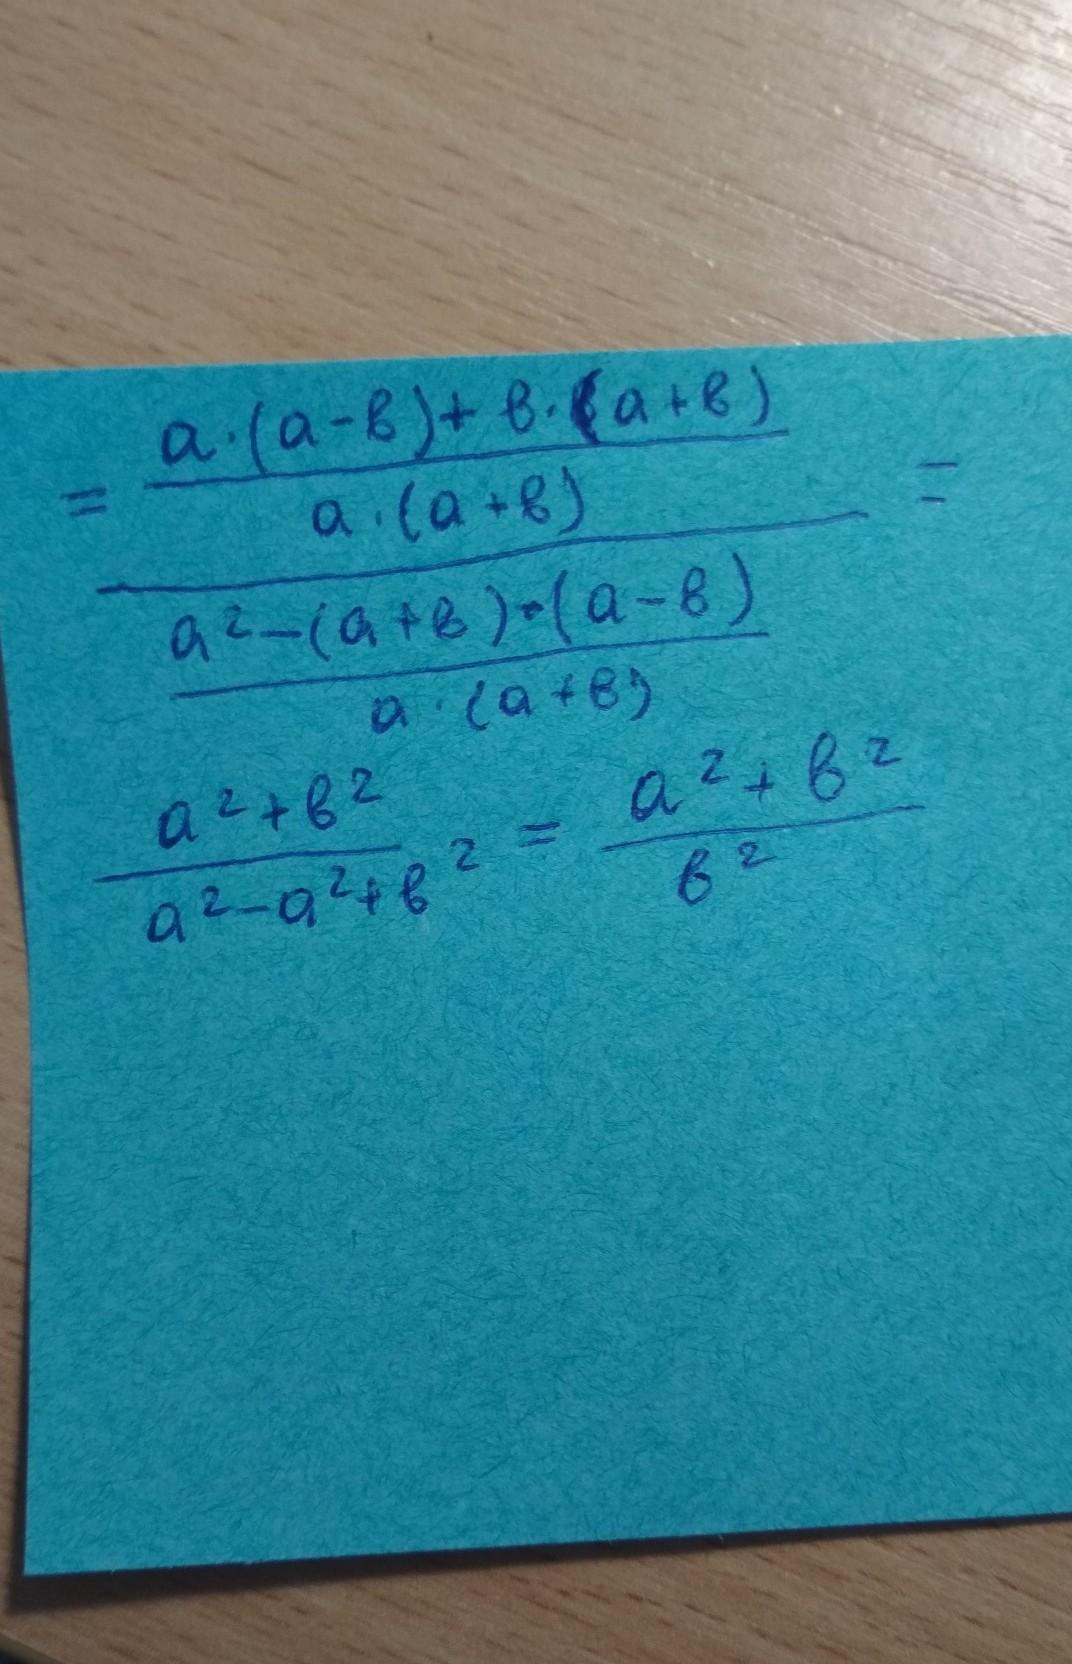 a·(a-в)+ в·(a+в)
= a·(a+в) =
a²-(a+в)·(a-в)
a·(a+в)
a²+в² = a²+в²
a²-a²+в² в²